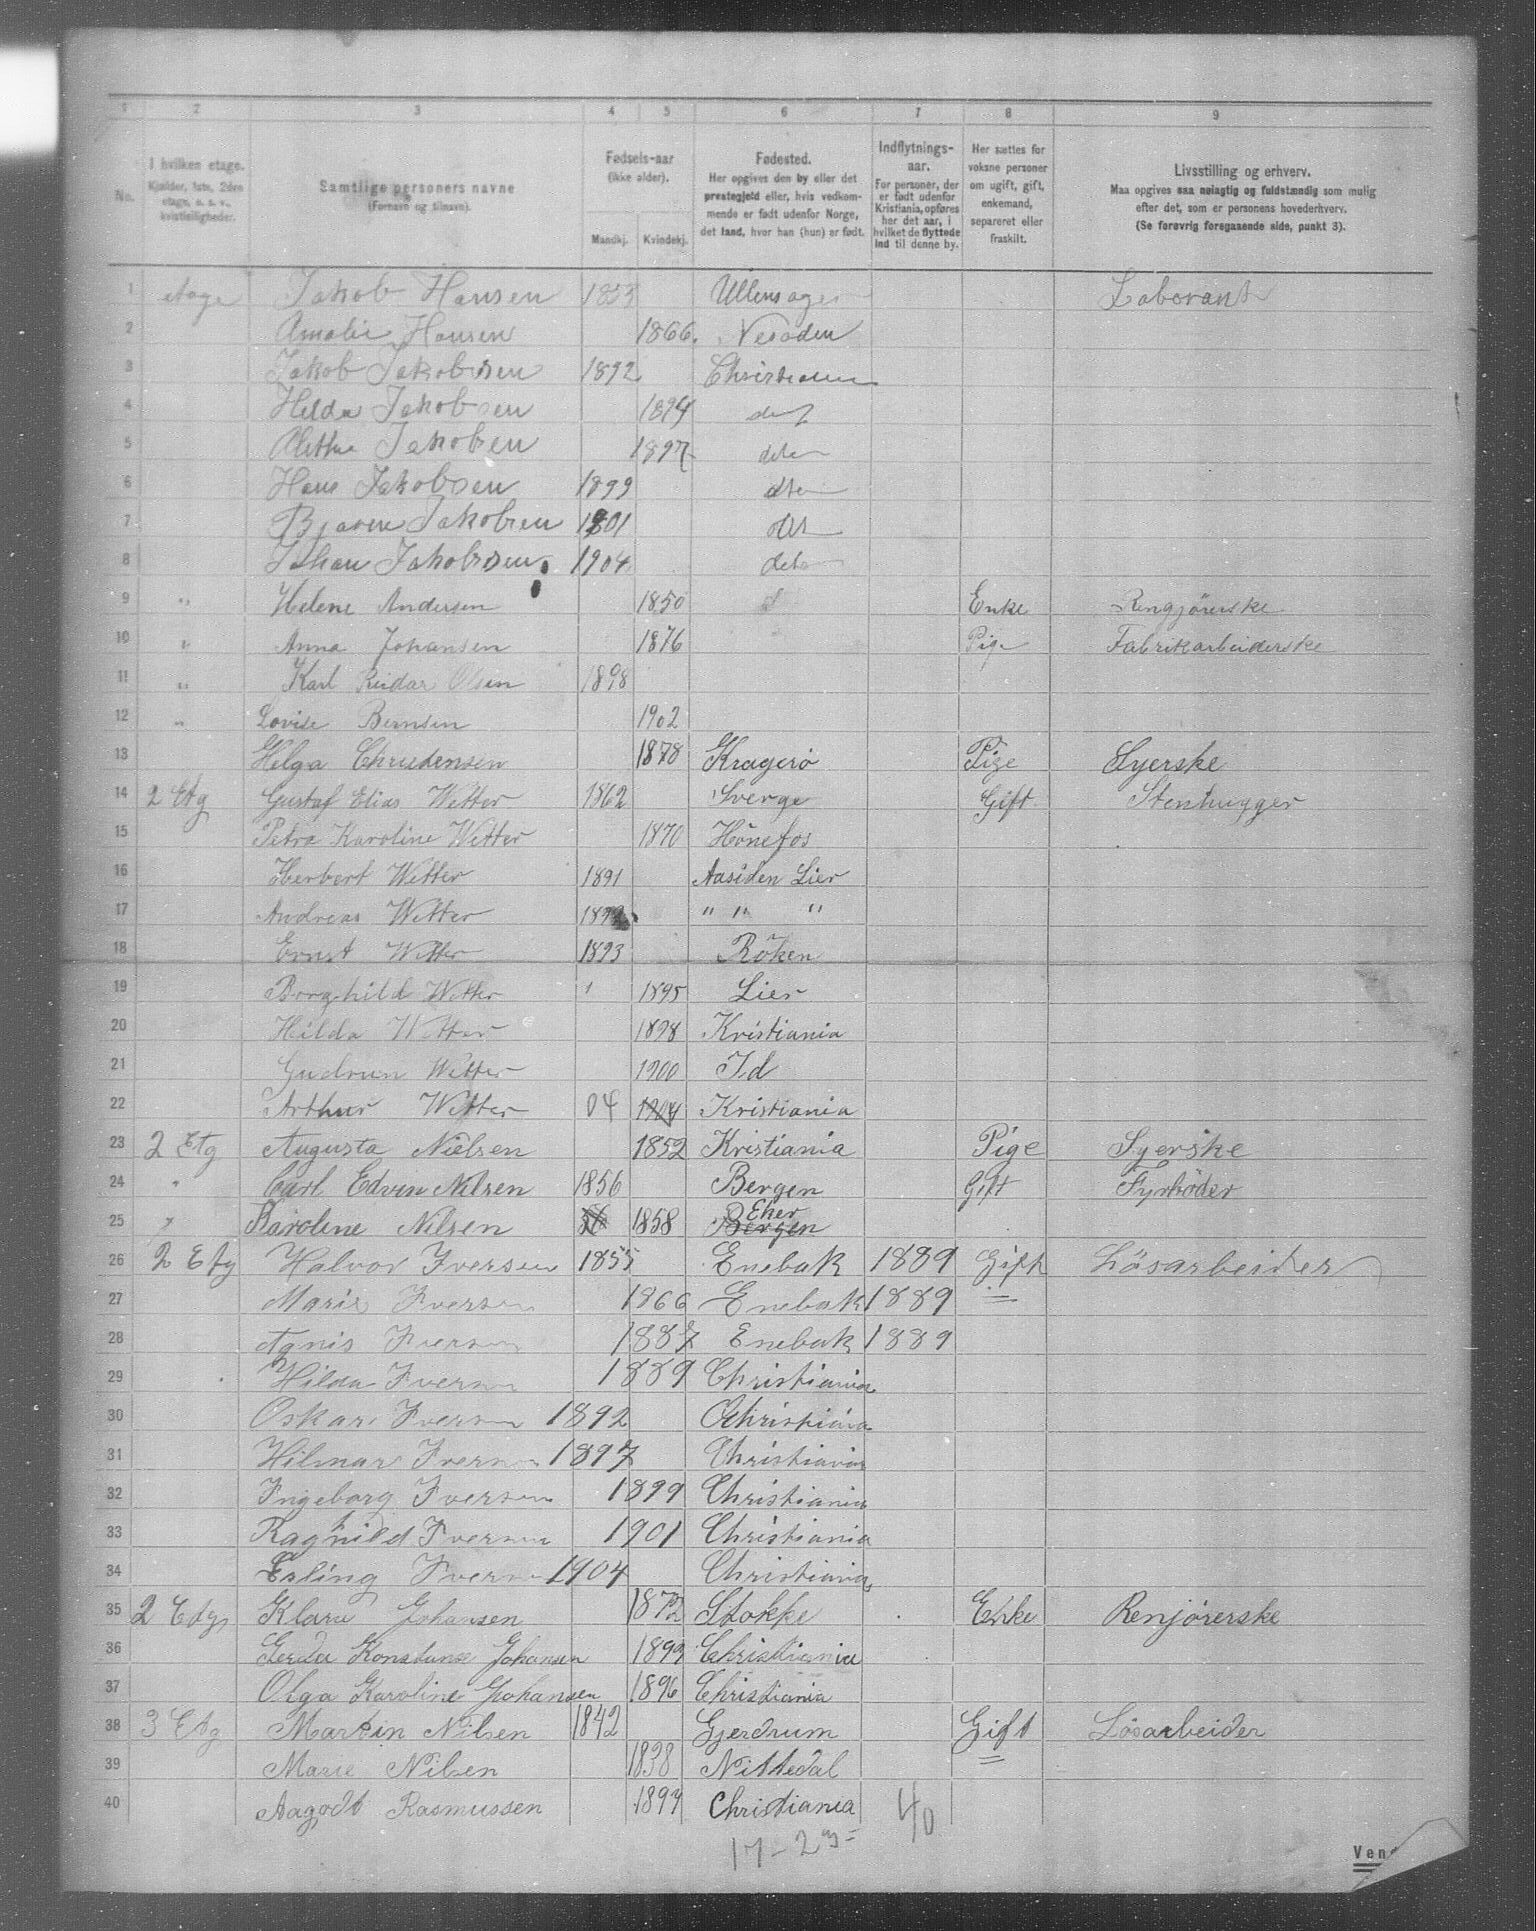 1 2 3 4 5 6 7 8 9
No. I hvilken etage. Kjelder, 1ste, 2den etage, o. s. v., kvistleiligheder. Samtlige personers navne (Fornavn og tilnavn). Fødsels-aar (ikke alder). Mandkj. Kvindekj. Fødested. Her opgives den by eller det prestegjeld eller, hvis vedkommende er født udenfor Norge, det land, hvor han (hun) er født. Indflytnings-aar. For personer, der er født udenfor Kristiania, opføres her det aar, i hvilket de flyttede ind til denne by. Her sættes for voksne personer om ugift, gift, enkemand, separeret eller fraskilt. Livsstilling og erhverv. Maa opgives saa nøiagtig og fuldstændig som mulig efter det, som er personens hovederhverv. (Se forøvrig foregaaende side, punkt 3).
1 etage Jakob Hansen 1853 Ullensager Laborant
2 Amalie Hansen 1866. Nesodden
3 Jakob Jakobsen 1892 Christiania
4 Hilda Jakobsen 1894
5 Jakobsen 1897
6 Hans Jakobsen 1899
7 Bjarne Jakobsen 1901
8 Johan Jakobsen 1904
9 " Helene Andersen 1850 Enke Rengjörerske
10 " Anna Johansen 1876 Pige Fabrikarbeiderske
11 " Karl Reidar Olsen 1898
12 " Lovise Bernsen 1902
13 Helga Christensen 1878 Kragerö Pige Syerske
14 2 Etg Gustaf Elias Wetter 1862 Sverge Gift Stenhugger
15 Petra Karoline Wetter 1870 Hönefos
16 Herbert Wetter 1891 Aasiden Lier
17 Andreas Wetter 1892 " " "
18 Ernst Wetter 1893 Röken
19 Borghild Wetter 1895 Lier
20 Hilda Wetter 1898 Kristiania
21 Gudrun Wetter 1900 Id
22 Arthur Wetter 04 1904 Kristiania
23 2 Etg Augusta Nielsen 1852 Kristiania Pige Syerske
24 " Carl Edvin Nilsen 1856 Bergen Gift Fyrböder
25 " Karoline Nilsen 1858 Bergen Eker
26 2 Etg Halvor Iversen 1855 Enebak 1889 Gift Lösarbeider
27 Marie Iversen 1866 Enebak 1889 =
28 Agnis Iversen 1887 Enebak 1889
29 Hilda Iversen 1889 Christiania
30 Oskar Iversen 1892 Christiania
31 Hilmar Iversen 1897 Christiania
32 Ingeborg Iversen 1899 Christiania
33 Ragnhild Iversen 1901 Christiania
34 Erling Iversen 1904 Christiania
35 2 Etg Klara Johansen 1872 Stokke Enke Renjörerske
36 Gerda Konstanse Johansen 1899 Christiania
37 Olga Karoline Johansen 1896 Christiania
38 3 Etg Martin Nilsen 1842 Gjerdrum Gift Lösarbeider
39 Marie Nilsen 1838 Nittedal =
40 Aagodt Rasmussen 1894 Christiania 40
17 - 23 =
Vend